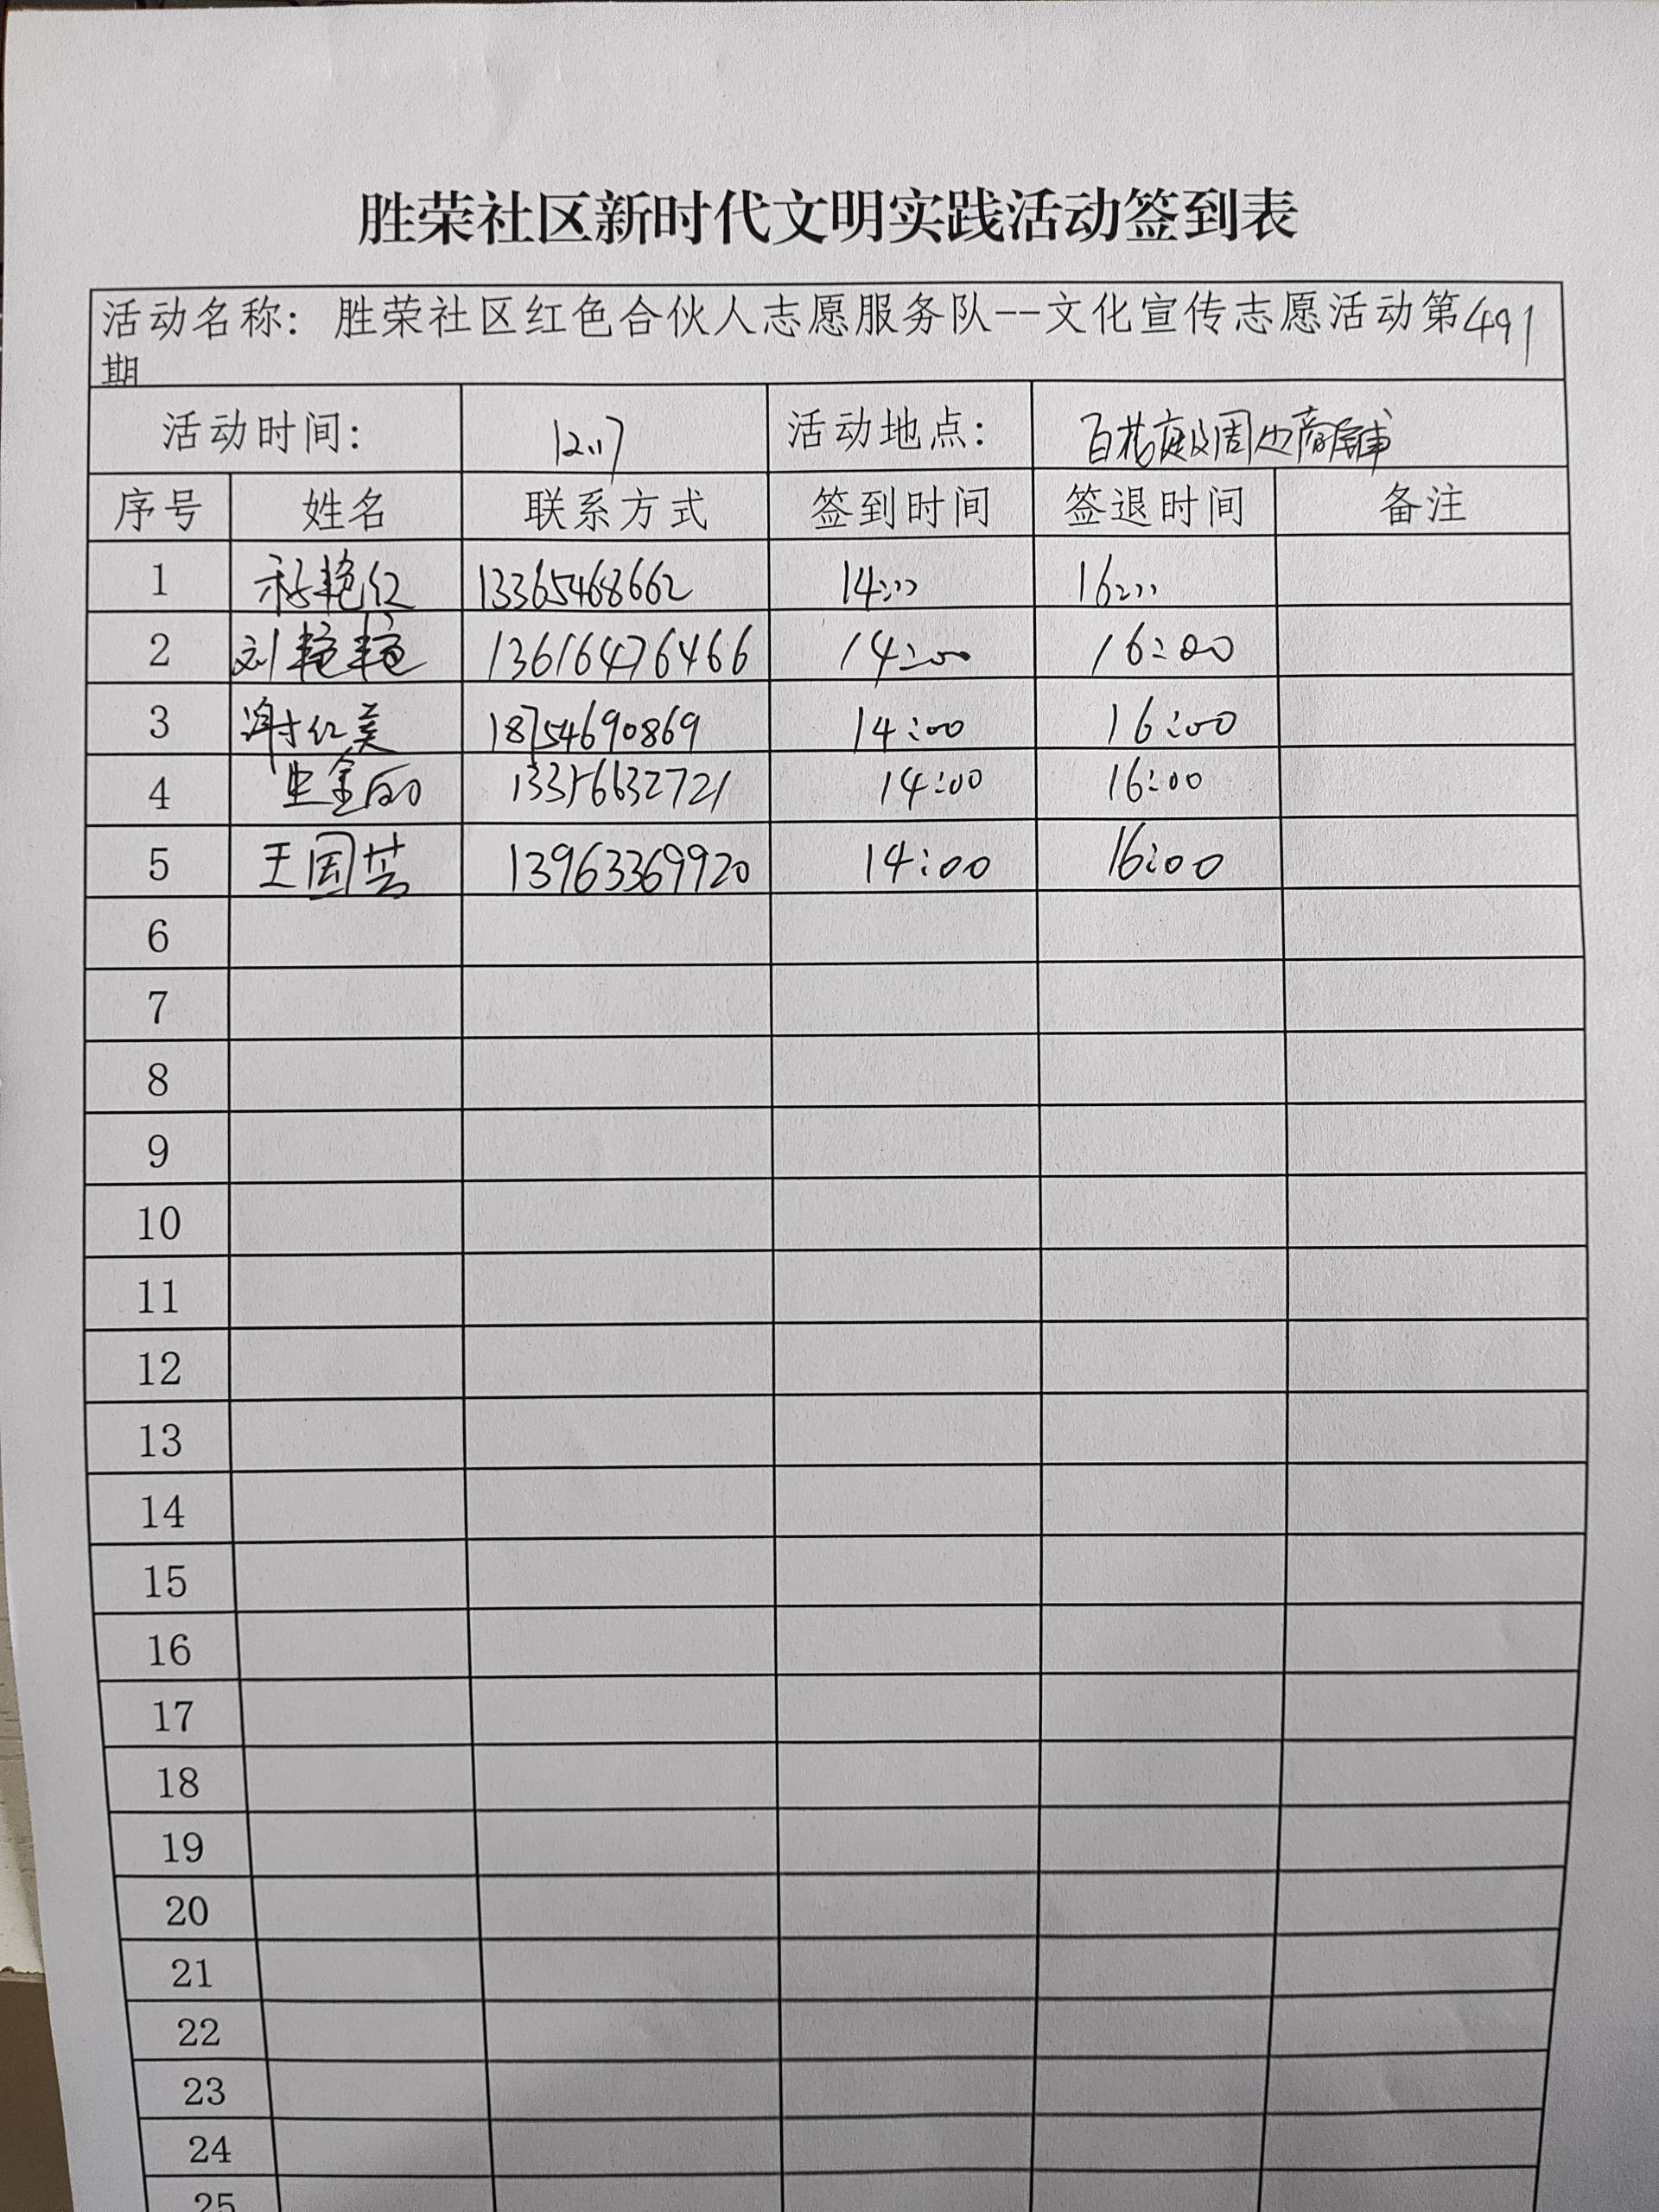 胜荣社区新时代文明实践活动签到表
活动名称：胜荣社区红色合伙人志愿服务队--文化宣传志愿活动第491
期
活动时间： 12.17 活动地点： 百花庭及周边商铺
序号 姓名 联系方式 签到时间 签退时间 备注
1 艳红 13365468662 14:00 16:00
2 刘艳艳 13616476466 14:00 16:00
3 谢红美 18754690869 14:00 16:00
4 13356632721 14:00 16:00
5 王国芸 13963369920 14:00 16:00
6
7
8
9
10
11
12
13
14
15
16
17
18
19
20
21
22
23
24
25